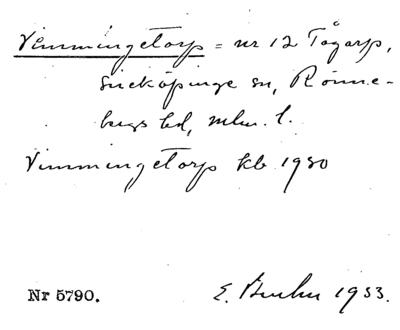 Vemmingetorp = nr 12 Tågarp,
Sireköpinge sn, Rönne-
bergs hd, mlm. l.
Vemmingetorp kb 1930
Nr 5790. E. 1933.